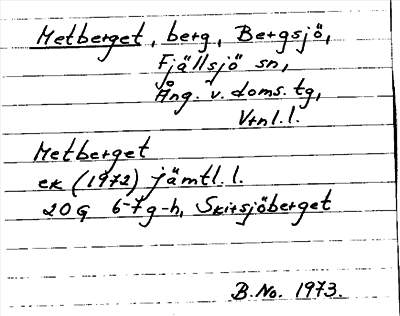 Metberget, berg, Bergsjö,
Fjällsjö sn,
Ång. v. doms. tg,
Vrnl. l.
Metberget
ek (1972) jämtl. l.
20G 6-7g-h, Skirsjöberget
B.No. 1973.